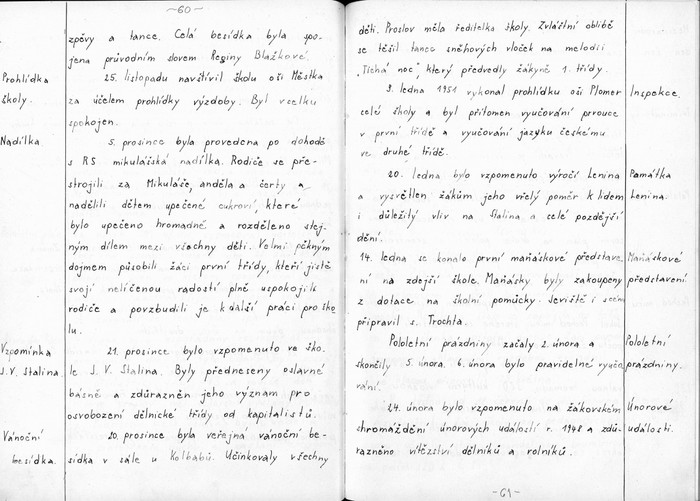 ~60~
zpěvy a tance. Celá besídka byla spo-
jena průvodním slovem Reginy Blažkové.
Prohlídka 25. listopadu navštívil školu oši Městka
školy. za účelem prohlídky výzdoby. Byl vselku
spokojen.
Nadílka 5. prosince byla provedena po dohodě
s RS mikulášská nadílka. Rodiče se pře-
strojili za Mikuláše, anděla a čerty a
nadělili dětem upečené cukroví, které
bylo upečeno hromadně a rozděleno stej-
ným dílem mezi všechny děti. Velmi pěkným
dojmem působili žáci první třídy, kteří jistě
svojí nelíčenou radostí plně uspokojili
rodiče a povzbudili je k další práci pro ško
lu.
Vzpomínka 21. prosince bylo vzpomenuto ve ško-
J. V. Stalina. le J. V. Stalina. Byly předneseny oslavné
básně a zdůrazněn jeho význam pro
osvobození dělnické třídy od kapitalistů.
Vánoční 20. prosince byla veřejná vánoční be-
besídka. sídka v sále u Kolbabů. Účinkovaly všechny
děti. Proslov měla ředitelka školy. Zvláštní oblibě
se těšil tanec sněhových vloček na melodii
„Tichá noc", který předvedly žákyně 1. třídy.
9. ledna 1951 vykonal prohlídku oši Plomer Inspekce.
celé školy a byl přítomen vyučování prouce
v první třídě a vyučování jazyku českému
ve druhé třídě.
20. ledna bylo vzpomenuto výročí Lenina Památka
a vysvětlen žákům jeho vřelý poměr k lidem Lenina.
i důležitý vliv na Stalina a celé pozdější
dění.
14. ledna se konalo první maňáskové představe Maňáskové
ní na zdejší škole. Maňásky byly zakoupeny představení
z dotace na školní pomůcky. Jeviště i scénu
připravil s. Trochta.
Pololetní prázdniny začaly 2. února a Pololetní
skončily 5. února. 6. února bylo pravidelné vyučo prázdniny.
vání.
24. února bylo vzpomenuto na žákovském Únorové
shromáždění únorových událostí r. 1948 a zdů- události.
razněno vítězství dělníků a rolníků.
-61-